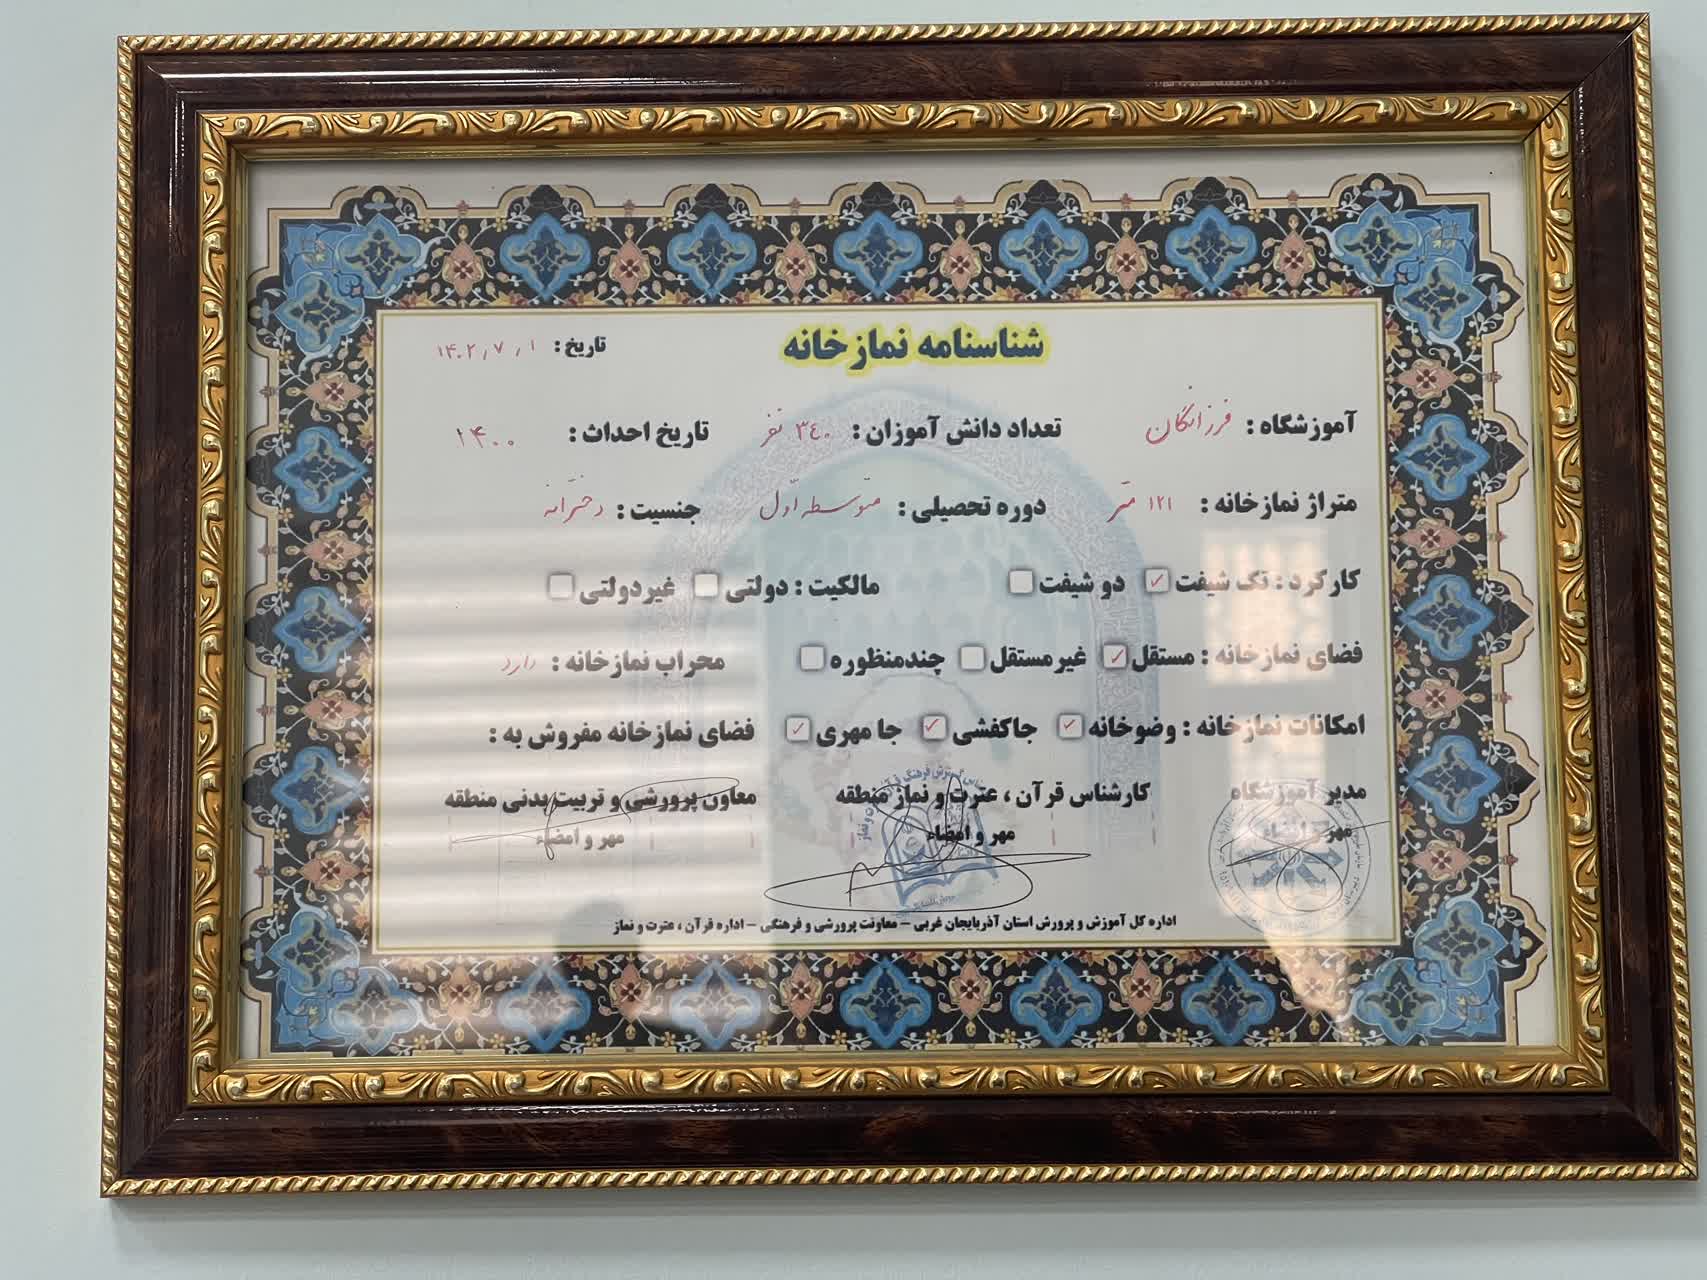 شناسنامه نمازخانه
تاریخ : ۱۴۰۲٫۷٫۱
آموزشگاه : فرزانگان تعداد دانش آموزان : ۳٤۰ نفر تاریخ احداث : ۱۴۰۰
متراژ نمازخانه : ۱۲۱ متر دوره تحصیلی : متوسطه اول جنسیت : دخترانه
کارکرد : تک شیفت دو شیفت مالکیت : دولتی غیردولتی
فضای نمازخانه : مستقل غیرمستقل چندمنظوره محراب نمازخانه : دارد
امکانات نمازخانه : وضوخانه جاکفشی جا مهری فضای نمازخانه مفروش به :
مدیر آموزشگاه کارشناس قرآن ، عترت و نماز منطقه معاون پرورشی و تربیت بدنی منطقه
مهر و امضاء مهر و امضاء مهر و امضاء
اداره کل آموزش و پرورش استان آذربایجان غربی – معاونت پرورشی و فرهنگی – اداره قرآن ، عترت و نماز